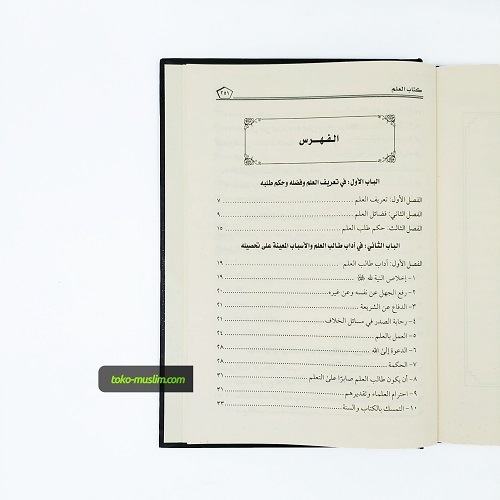 كتاب العلم
٢٥١
الفهرس
الباب الأول: في تعريف العلم وفضله وحكم طلبه
الفصل الأول: تعريف العلم ٧
الفصل الثاني: فضائل العلم ٩
الفصل الثالث: حكم طلب العلم ١٥
الباب الثاني: في آداب طالب العلم والأسباب المعينة على تحصيله
الفصل الأول: آداب طالب العلم ١٩
١- إخلاص النية لله ﷻ ١٩
٢- رفع الجهل عن نفسه وعن غيره ٢٠
٣- الدفاع عن الشريعة ٢١
٤- رحابة الصدر في مسائل الخلاف ٢١
٥- العمل بالعلم ٢٤
٦- الدعوة إلى الله ٢٨
٧- الحكمة ٢٨
٨- أن يكون طالب العلم صابرًا على التعلم ٣١
٩- احترام العلماء وتقديرهم ٣١
١٠- التمسك بالكتاب والسنة ٣٣
toko-muslim.com